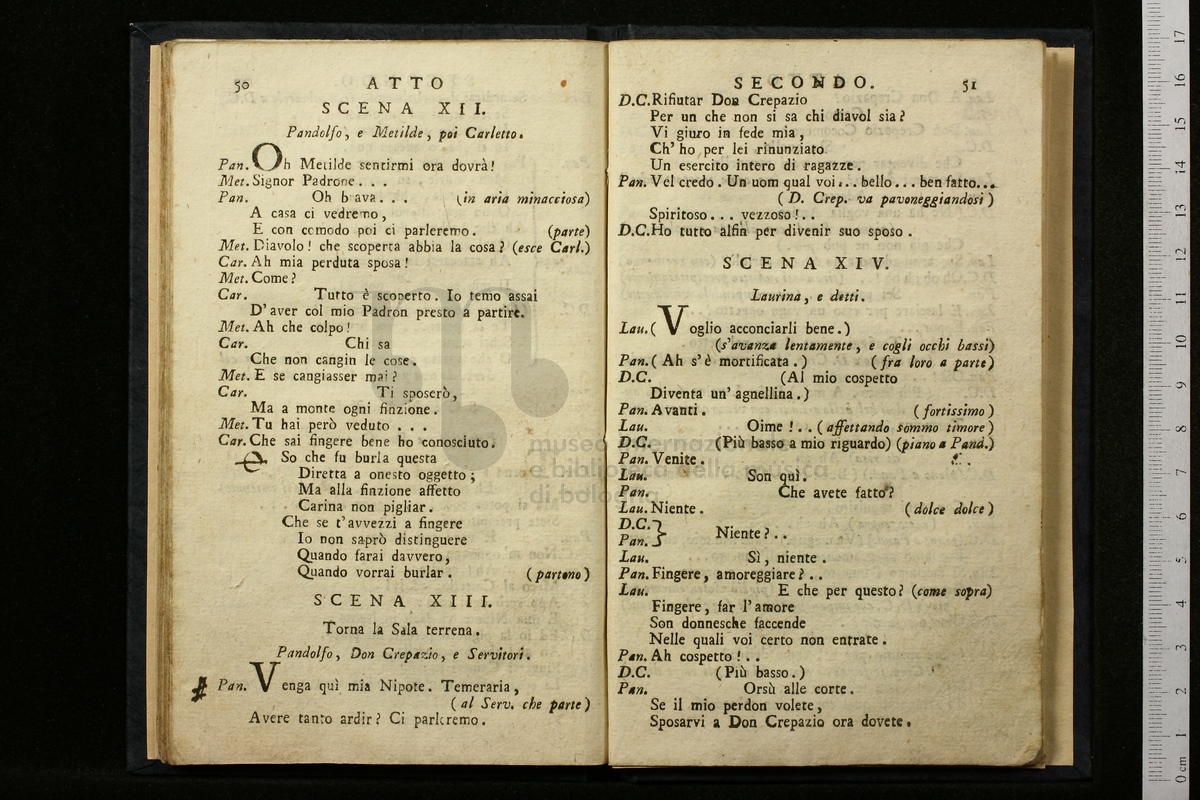 50 ATTO
SCENA XII.
Pandolfo, e Metilde, poi Carletto.
Pan. Oh Metilde sentirmi ora dovrà!
Met. Signor Padrone . . .
Pan. Oh brava. . . (in aria minacciosa)
A casa ci vedremo,
E con comodo poi ci parleremo. (parte)
Met. Diavolo! che scoperta abbia la cosa? (esce Carl.)
Car. Ah mia perduta sposa!
Met. Come?
Car. Tutto è scoperto. Io temo assai
D'aver col mio Padron presto a partire.
Met. Ah che colpo!
Car. Chi sa
Che non cangin le cose.
Met. E se cangiasser mai?
Car. Ti sposerò,
Ma a monte ogni finzione.
Met. Tu hai però veduto . . .
Car. Che sai fingere bene ho conosciuto.
So che fu burla questa
Diretta a onesto oggetto;
Ma alla finzione affetto
Carina non pigliar.
Che se t'avvezzi a fingere
Io non saprò distinguere
Quando farai davvero,
Quando vorrai burlar. (partono)
SCENA XIII.
Torna la Sala terrena.
Pandolfo, Don Crepazio, e Servitori.
Pan. Venga quì mia Nipote. Temeraria,
(al Serv. che parte)
Avere tanto ardir? Ci parleremo.
SECONDO. 51
D.C. Rifiutar Don Crepazio
Per un che non si sa chi diavol sia?
Vi giuro in fede mia,
Ch'ho per lei rinunziato
Un esercito intero di ragazze.
Pan. Vel credo. Un uom qual voi... bello... ben fatto...
(D. Crep. va pavoneggiandosi)
Spiritoso... vezzoso!..
D.C. Ho tutto alfin per divenir suo sposo.
SCENA XIV.
Laurina, e detti.
Lau. (Voglio acconciarli bene.)
(s'avanza lentamente, e cogli occhi bassi)
Pan. (Ah s'è mortificata.) (fra loro a parte)
D.C. (Al mio cospetto
Diventa un'agnellina.)
Pan. Avanti. (fortissimo)
Lau. Oime!..(affettando sommo timore)
D.C. (Più basso a mio riguardo) (piano a Pand.)
Pan. Venite.
Lau. Son quì.
Pan. Che avete fatto?
Lau. Niente. (dolce dolce)
D.C. }
Pan. } Niente?..
Lau. Sì, niente.
Pan. Fingere, amoreggiare?..
Lau. E che per questo? (come sopra)
Fingere, far l'amore
Son donnesche faccende
Nelle quali voi certo non entrate.
Pan. Ah cospetto!..
D.C. (Più basso.)
Pan. Orsù alle corte.
Se il mio perdon volete,
Sposarvi a Don Crepazio ora dovete.
museo internazionale
e biblioteca della musica
di bologna
0 cm 1 2 3 4 5 6 7 8 9 10 11 12 13 14 15 16 17